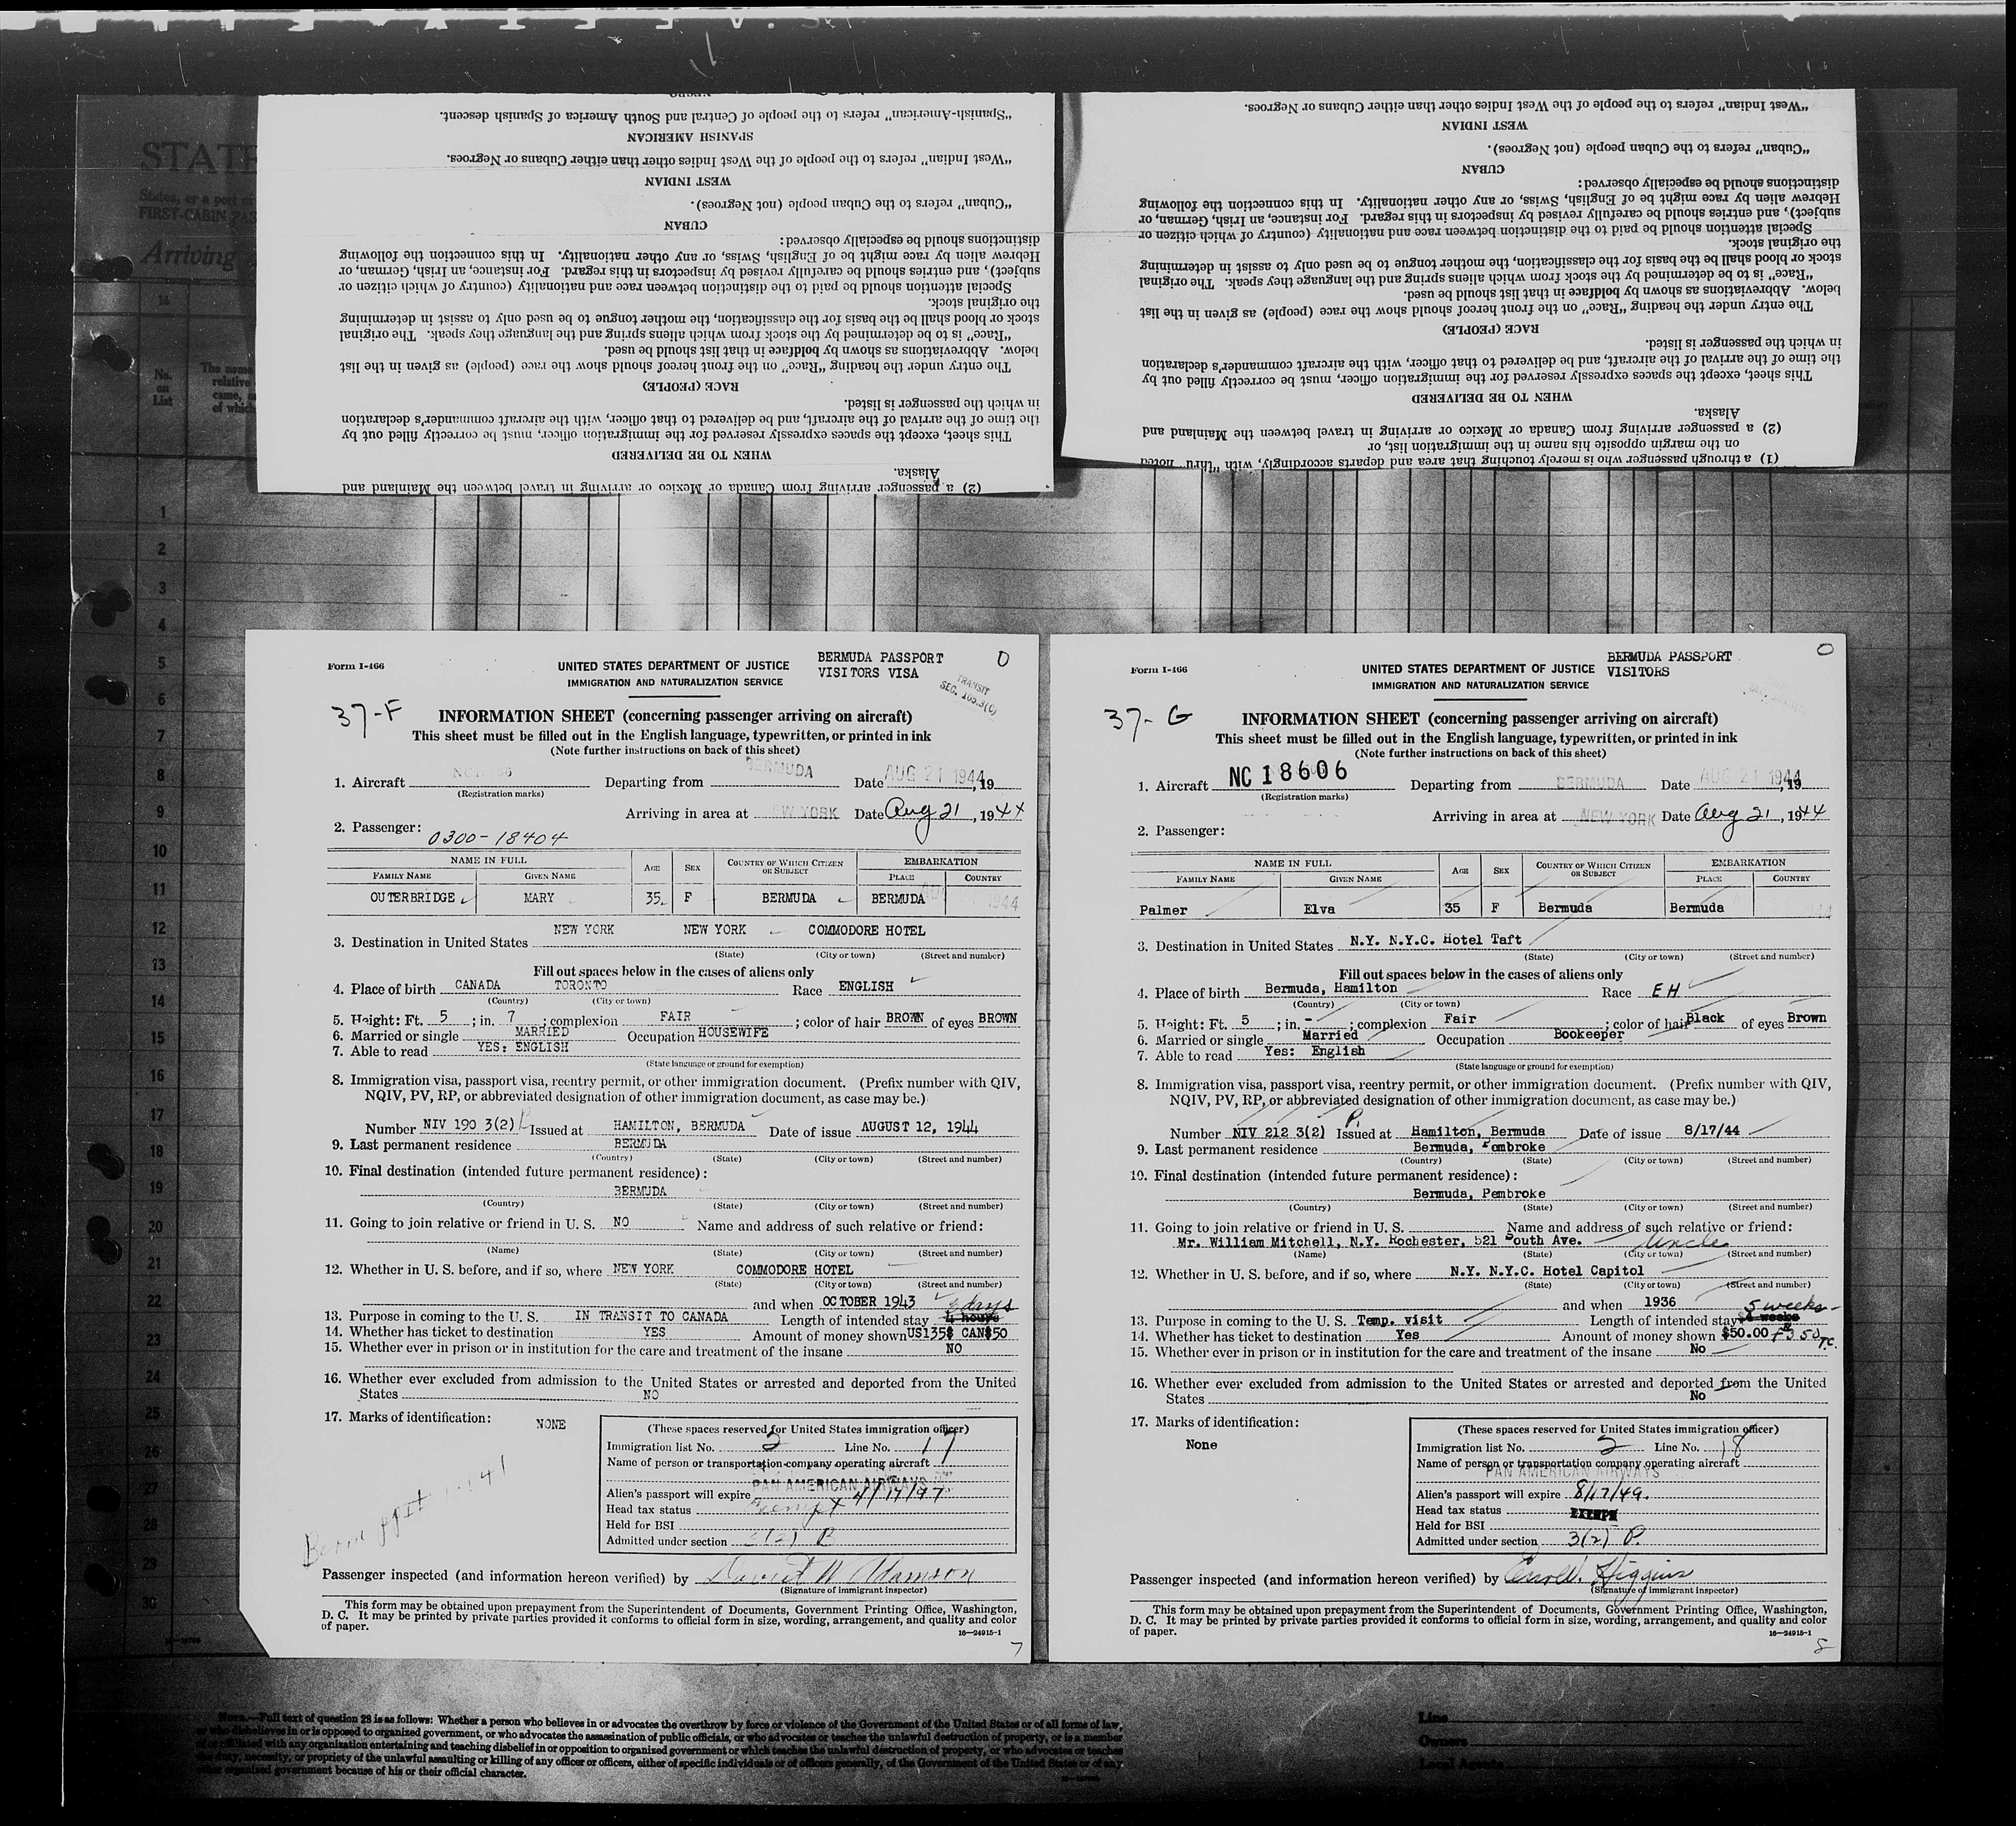 NEGRO
"Spanish-American" refers to the people of Central and South America of Spanish descent.
SPANISH AMERICAN
"West Indian" refers to the people of the West Indies other than either Cubans or Negroes.
WEST INDIAN
"Cuban" refers to the Cuban people (not Negroes).
CUBAN
distinctions should be especially observed:
Hebrew alien by race might be of English, Swiss, or any other nationality. In this connection the following
subject), and entries should be carefully revised by inspectors in this regard. For instance, an Irish, German, or
Special attention should be paid to the distinction between race and nationality (country of which citizen or
the original stock.
stock or blood shall be the basis for the classification, the mother tongue to be used only to assist in determining
"Race" is to be determined by the stock from which aliens spring and the language they speak. The original
below. Abbreviations as shown by boldface in that list should be used.
The entry under the heading "Race" on the front hereof should show the race (people) as given in the list
RACE (PEOPLE)
in which the passenger is listed.
the time of the arrival of the aircraft, and be delivered to that officer, with the aircraft commander's declaration
This sheet, except the spaces expressly reserved for the immigration officer, must be correctly filled out by
WHEN TO BE DELIVERED
Alaska.
(2) a passenger arriving from Canada or Mexico or arriving in travel between the Mainland and
"West Indian" refers to the people of the West Indies other than either Cubans or Negroes.
WEST INDIAN
"Cuban" refers to the Cuban people (not Negroes).
CUBAN
distinctions should be especially observed:
Hebrew alien by race might be of English, Swiss, or any other nationality. In this connection the following
subject), and entries should be carefully revised by inspectors in this regard. For instance, an Irish, German, or
Special attention should be paid to the distinction between race and nationality (country of which citizen or
the original stock.
stock or blood shall be the basis for the classification, the mother tongue to be used only to assist in determining
"Race" is to be determined by the stock from which aliens spring and the language they speak. The original
below. Abbreviations as shown by boldface in that list should be used.
The entry under the heading "Race" on the front hereof should show the race (people) as given in the list
RACE (PEOPLE)
in which the passenger is listed.
the time of the arrival of the aircraft, and be delivered to that officer, with the aircraft commander's declaration
This sheet, except the spaces expressly reserved for the immigration officer, must be correctly filled out by
WHEN TO BE DELIVERED
Alaska.
(2) a passenger arriving from Canada or Mexico or arriving in travel between the Mainland and
on the margin opposite his name in the immigration list, or
(1) a through passenger who is merely touching that area and departs accordingly, with "thru" noted
STATE
States, or a port of
FIRST-CABIN PAS
Arriving
No. on List
The name
relative
came, o
of which
1
2
3
4
5
6
7
8
9
10
11
12
13
14
15
16
17
18
19
20
21
22
23
24
25
26
27
28
29
30
Form I-466
UNITED STATES DEPARTMENT OF JUSTICE
IMMIGRATION AND NATURALIZATION SERVICE
BERMUDA PASSPORT
VISITORS VISA
0
TRANSIT
SEC. 165.3(C)
37-F
INFORMATION SHEET (concerning passenger arriving on aircraft)
This sheet must be filled out in the English language, typewritten, or printed in ink
(Note further instructions on back of this sheet)
1. Aircraft Departing from BERMUDA Date AUG 21 1944, 19
(Registration marks)
Arriving in area at NEW YORK Date Aug 21, 1944
2. Passenger: 0300-18404
NAME IN FULL AGE SEX COUNTRY OF WHICH CITIZEN OR SUBJECT EMBARKATION
FAMILY NAME GIVEN NAME PLACE COUNTRY
OUTERBRIDGE MARY 35 F BERMUDA BERMUDA
3. Destination in United States NEW YORK NEW YORK COMMODORE HOTEL
(State) (City or town) (Street and number)
Fill out spaces below in the cases of aliens only
4. Place of birth CANADA TORONTO Race ENGLISH
(Country) (City or town)
5. Height: Ft. 5; in. 7; complexion FAIR; color of hair BROWN of eyes BROWN
6. Married or single MARRIED Occupation HOUSEWIFE
7. Able to read YES: ENGLISH
(State language or ground for exemption)
8. Immigration visa, passport visa, reentry permit, or other immigration document. (Prefix number with QIV,
NQIV, PV, RP, or abbreviated designation of other immigration document, as case may be.)
Number NIV 190 3(2) P Issued at HAMILTON, BERMUDA Date of issue AUGUST 12, 1944
9. Last permanent residence BERMUDA
(Country) (State) (City or town) (Street and number)
10. Final destination (intended future permanent residence):
BERMUDA
(Country) (State) (City or town) (Street and number)
11. Going to join relative or friend in U. S. NO Name and address of such relative or friend:
(Name) (State) (City or town) (Street and number)
12. Whether in U. S. before, and if so, where NEW YORK COMMODORE HOTEL
(State) (City or town) (Street and number)
and when OCTOBER 1943 days
13. Purpose in coming to the U. S. IN TRANSIT TO CANADA Length of intended stay 4 hours
14. Whether has ticket to destination YES Amount of money shown US135$ CAN$50
15. Whether ever in prison or in institution for the care and treatment of the insane NO
16. Whether ever excluded from admission to the United States or arrested and deported from the United
States NO
17. Marks of identification: NONE
(These spaces reserved for United States immigration officer)
Immigration list No. 2 Line No. 17
Name of person or transportation company operating aircraft
PAN AMERICAN AIRWAYS
Alien's passport will expire 4/17/97
Head tax status Exempt
Held for BSI
Admitted under section 3(2) P
Passenger inspected (and information hereon verified) by David W Adamson
(Signature of immigrant inspector)
This form may be obtained upon prepayment from the Superintendent of Documents, Government Printing Office, Washington,
D. C. It may be printed by private parties provided it conforms to official form in size, wording, arrangement, and quality and color
of paper.
16—24915-1
7
Form I-466
UNITED STATES DEPARTMENT OF JUSTICE
IMMIGRATION AND NATURALIZATION SERVICE
BERMUDA PASSPORT
VISITORS
0
37- G
INFORMATION SHEET (concerning passenger arriving on aircraft)
This sheet must be filled out in the English language, typewritten, or printed in ink
(Note further instructions on back of this sheet)
1. Aircraft NC 18606 Departing from BERMUDA Date AUG 21 1944, 19
(Registration marks)
Arriving in area at NEW YORK Date Aug 21, 1944
2. Passenger:
NAME IN FULL AGE SEX COUNTRY OF WHICH CITIZEN OR SUBJECT EMBARKATION
FAMILY NAME GIVEN NAME PLACE COUNTRY
Palmer Elva 35 F Bermuda Bermuda
3. Destination in United States N.Y. N.Y.C. Hotel Taft
(State) (City or town) (Street and number)
Fill out spaces below in the cases of aliens only
4. Place of birth Bermuda, Hamilton Race EH
(Country) (City or town)
5. Height: Ft. 5; in. -; complexion Fair; color of hair Black of eyes Brown
6. Married or single Married Occupation Bookeeper
7. Able to read Yes: English
(State language or ground for exemption)
8. Immigration visa, passport visa, reentry permit, or other immigration document. (Prefix number with QIV,
NQIV, PV, RP, or abbreviated designation of other immigration document, as case may be.)
Number NIV 212 3(2) P. Issued at Hamilton, Bermuda Date of issue 8/17/44
9. Last permanent residence Bermuda, Pembroke
(Country) (State) (City or town) (Street and number)
10. Final destination (intended future permanent residence):
Bermuda, Pembroke
(Country) (State) (City or town) (Street and number)
11. Going to join relative or friend in U. S. Name and address of such relative or friend:
Mr. William Mitchell, N.Y. Rochester, 521 South Ave. Uncle
(Name) (State) (City or town) (Street and number)
12. Whether in U. S. before, and if so, where N.Y. N.Y.C. Hotel Capitol
(State) (City or town) (Street and number)
and when 1936 5 weeks
13. Purpose in coming to the U. S. Temp. visit Length of intended stay weeks
14. Whether has ticket to destination Yes Amount of money shown $50.00 + 350 T.C.
15. Whether ever in prison or in institution for the care and treatment of the insane No
16. Whether ever excluded from admission to the United States or arrested and deported from the United
States No
17. Marks of identification:
None
(These spaces reserved for United States immigration officer)
Immigration list No. 2 Line No. 18
Name of person or transportation company operating aircraft
PAN AMERICAN AIRWAYS
Alien's passport will expire 8/17/49.
Head tax status EXEMPT
Held for BSI
Admitted under section 3(2) P.
Passenger inspected (and information hereon verified) by Higgins
(Signature of immigrant inspector)
This form may be obtained upon prepayment from the Superintendent of Documents, Government Printing Office, Washington,
D. C. It may be printed by private parties provided it conforms to official form in size, wording, arrangement, and quality and color
of paper.
16—24915-1
8
Note.—Full text of question 28 is as follows: Whether a person who believes in or advocates the overthrow by force or violence of the Government of the United States or of all forms of law,
or who disbelieves in or is opposed to organized government, or who advocates the assassination of public officials, or who advocates or teaches the unlawful destruction of property, or is a member
of or affiliated with any organization entertaining and teaching disbelief in or opposition to organized government or which teaches the unlawful destruction of property, or who advocates or teaches
the duty, necessity, or propriety of the unlawful assaulting or killing of any officer or officers, either of specific individuals or of officers generally, of the Government of the United States or of any
other organized government because of his or their official character.
Line
Owners
Local Agents